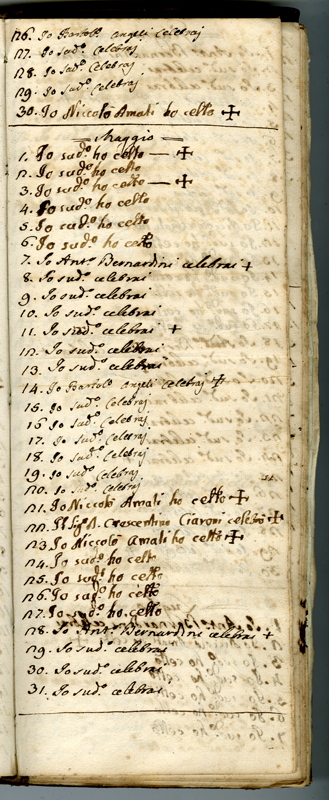 26. Io Bartol.o Angeli Celebraj
27. Io sud.o Celebraj
28. Io sud.o Celebraj
29. Io sud.o Celebraj
30. Io Niccolò Amati ho celto ✠
Maggio
1. Io sud.o ho celto — ✠
2. Io sud.o ho celto
3. Io sud.o ho celto — ✠
4. Io sud.o ho celto
5. Io sud.o ho celto
6. Io sud.o ho celto
7. Io Ant.o Bernardini celebrai +
8. Io sud.o celebrai
9. Io sud.o celebrai
10. Io sud.o celebrai
11. Io sud.o celebrai +
12. Io sud.o celebrai
13. Io sud.o celebrai
14. Io Bartol.o Angeli Celebraj ✠
15. Io sud.o Celebraj
16 Io sud.o Celebraj
17. Io sud.o Celebraj
18. Io sud.o Celebraj
19. Io sud.o Celebraj
20. Io sud.o Celebraj
21. Io Niccolò Amati ho celto ✠
22. Il Sig.r D. Crescentino Ciaroni celebrò ✠
23 Io Niccolò Amati ho celto ✠
24. Io sud.o ho celto
25. Io sud.o ho celto
26. Io sud.o ho celto
27. Io sud.o ho celto
28. Io Ant.o Bernardini celebrai +
29. Io sud.o celebrai
30. Io sud.o celebrai
31. Io sud.o celebrai